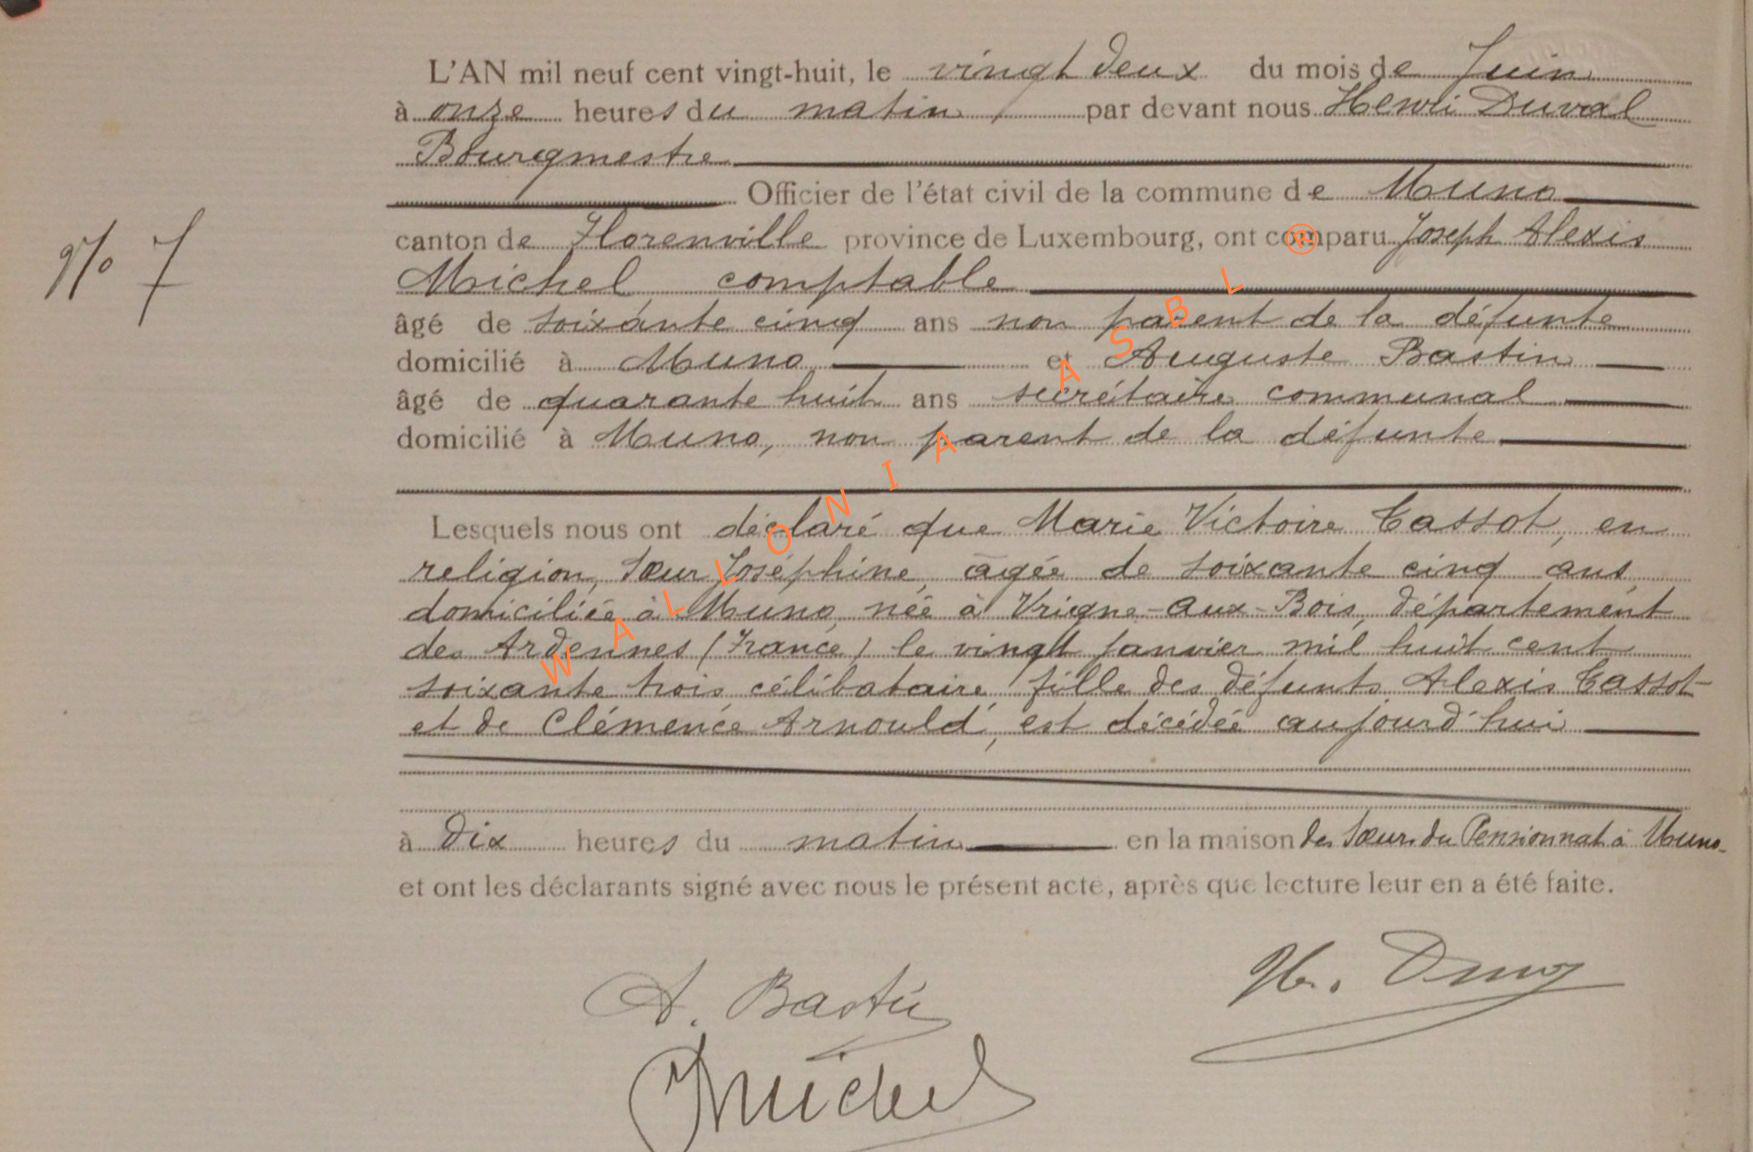 L'AN mil neuf cent vingt-huit, le vingt deux du mois de Juin
à onze heures du matin, par devant nous Henri Duval
Bourgmestre
Officier de l'état civil de la commune de Muno
N° 7
canton de Florenville province de Luxembourg, ont comparu Joseph Alexis
Michel comptable
âgé de soixante cinq ans non parent de la défunte
domicilié à Muno et Auguste Bastin
âgé de quarante huit ans secrétaire communal
domicilié à Muno, non parent de la défunte
Lesquels nous ont déclaré que Marie Victoire Cassot, en
religion, Sœur Joséphine, âgée de soixante cinq ans
domiciliée à Muno, née à Vrigne-aux-Bois, département
des Ardennes (France) le vingt janvier mil huit cent
soixante trois, célibataire, fille des défunts Alexis Cassot
et de Clémence Arnould, est décédée aujourd'hui
à dix heures du matin en la maison des Sœurs du Pensionnat à Muno
et ont les déclarants signé avec nous le présent acte, après que lecture leur en a été faite.
A. Bastin
Michel
WALLONIA ASBL ®